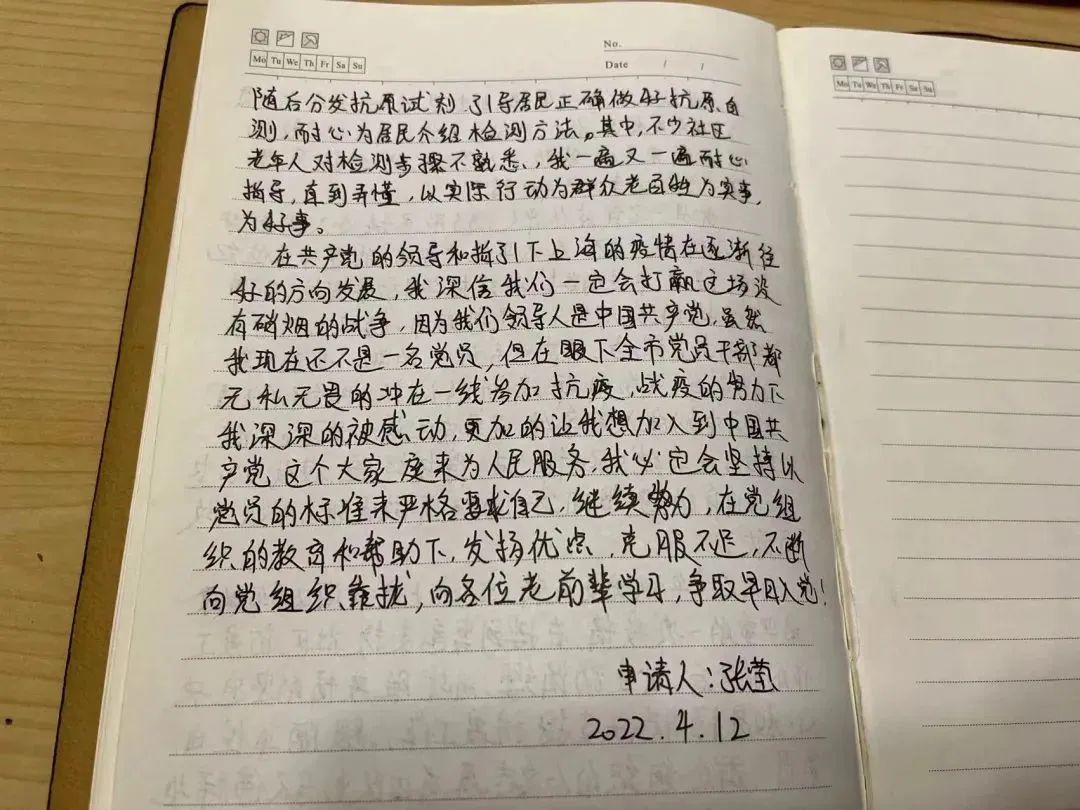 No.
Mo Tu We Th Fr Sa Su
Date / /
随后分发抗原试剂引导居民正确做好抗原自
测,耐心为居民介绍检测方法。其中,不少社区
老年人对检测步骤不熟悉,我一遍又一遍耐心
指导,直到弄懂,以实际行动为群众老百姓为实事,
为好事。
在共产党的领导和指引下上海的疫情在逐渐往
好的方向发展,我深信我们一定会打赢这场没
有硝烟的战争,因为我们领导人是中国共产党,虽然
我现在还不是一名党员,但在眼下全市党员干部都
无私无畏的冲在一线参加抗疫,战疫的努力下
我深深的被感动,更加的让我想加入到中国共
产党这个大家庭来为人民服务,我必定会坚持以
党员的标准来严格要求自己,继续努力,在党组
织的教育和帮助下,发扬优点,克服不足,不断
向党组织靠拢,向各位老前辈学习,争取早日入党!
申请人:张莹
2022.4.12
Mo Tu We Th Fr Sa Su